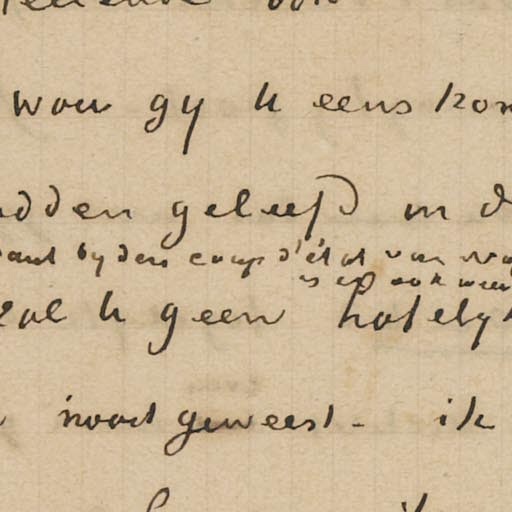 wou gy U eens kon
dden geleefd in d
want by den coup d'état van
is er ook weer
zal U geen hatelyk
nooit geweest - ik